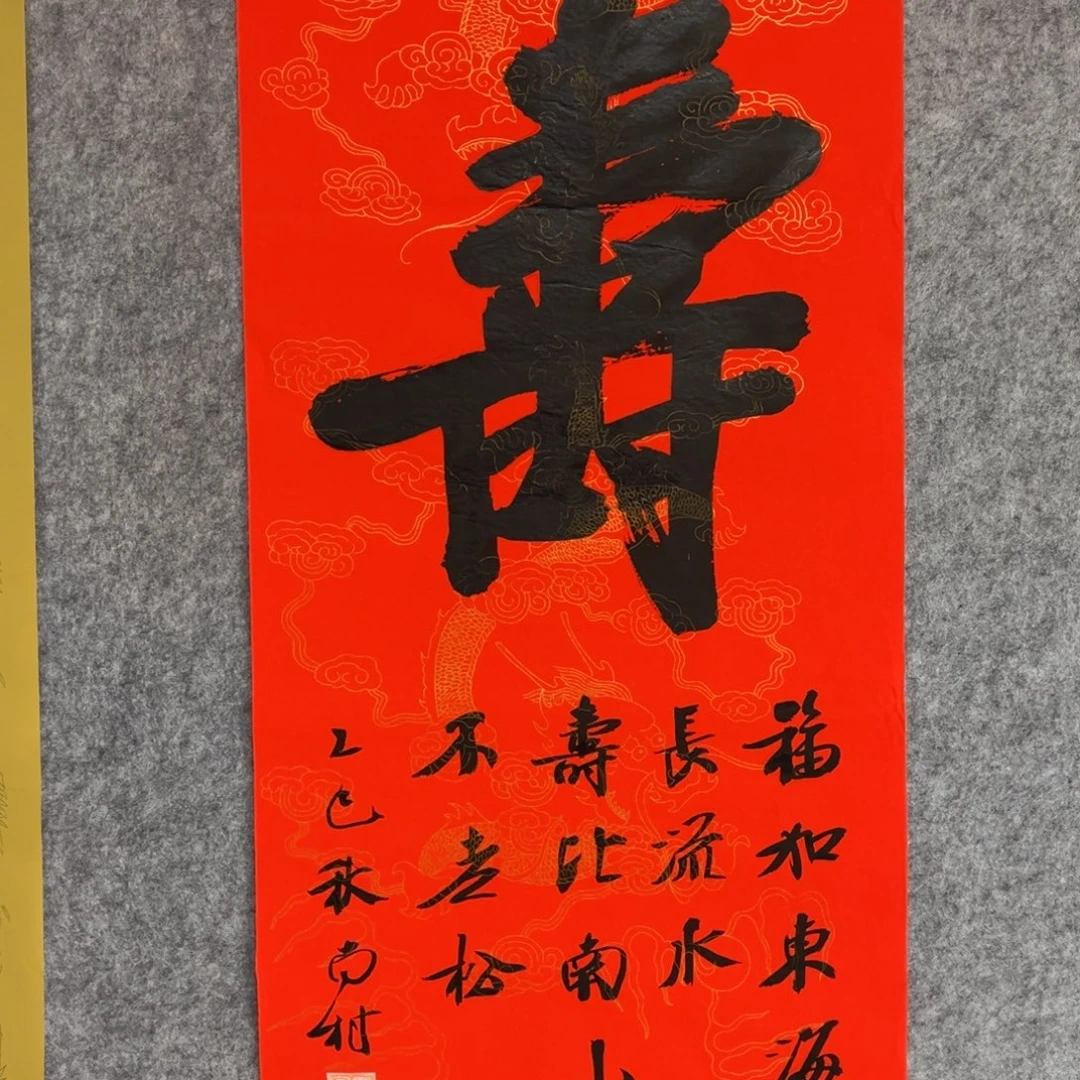 壽
福如東海
長流水
壽比南山
不老松
乙巳秋尚村